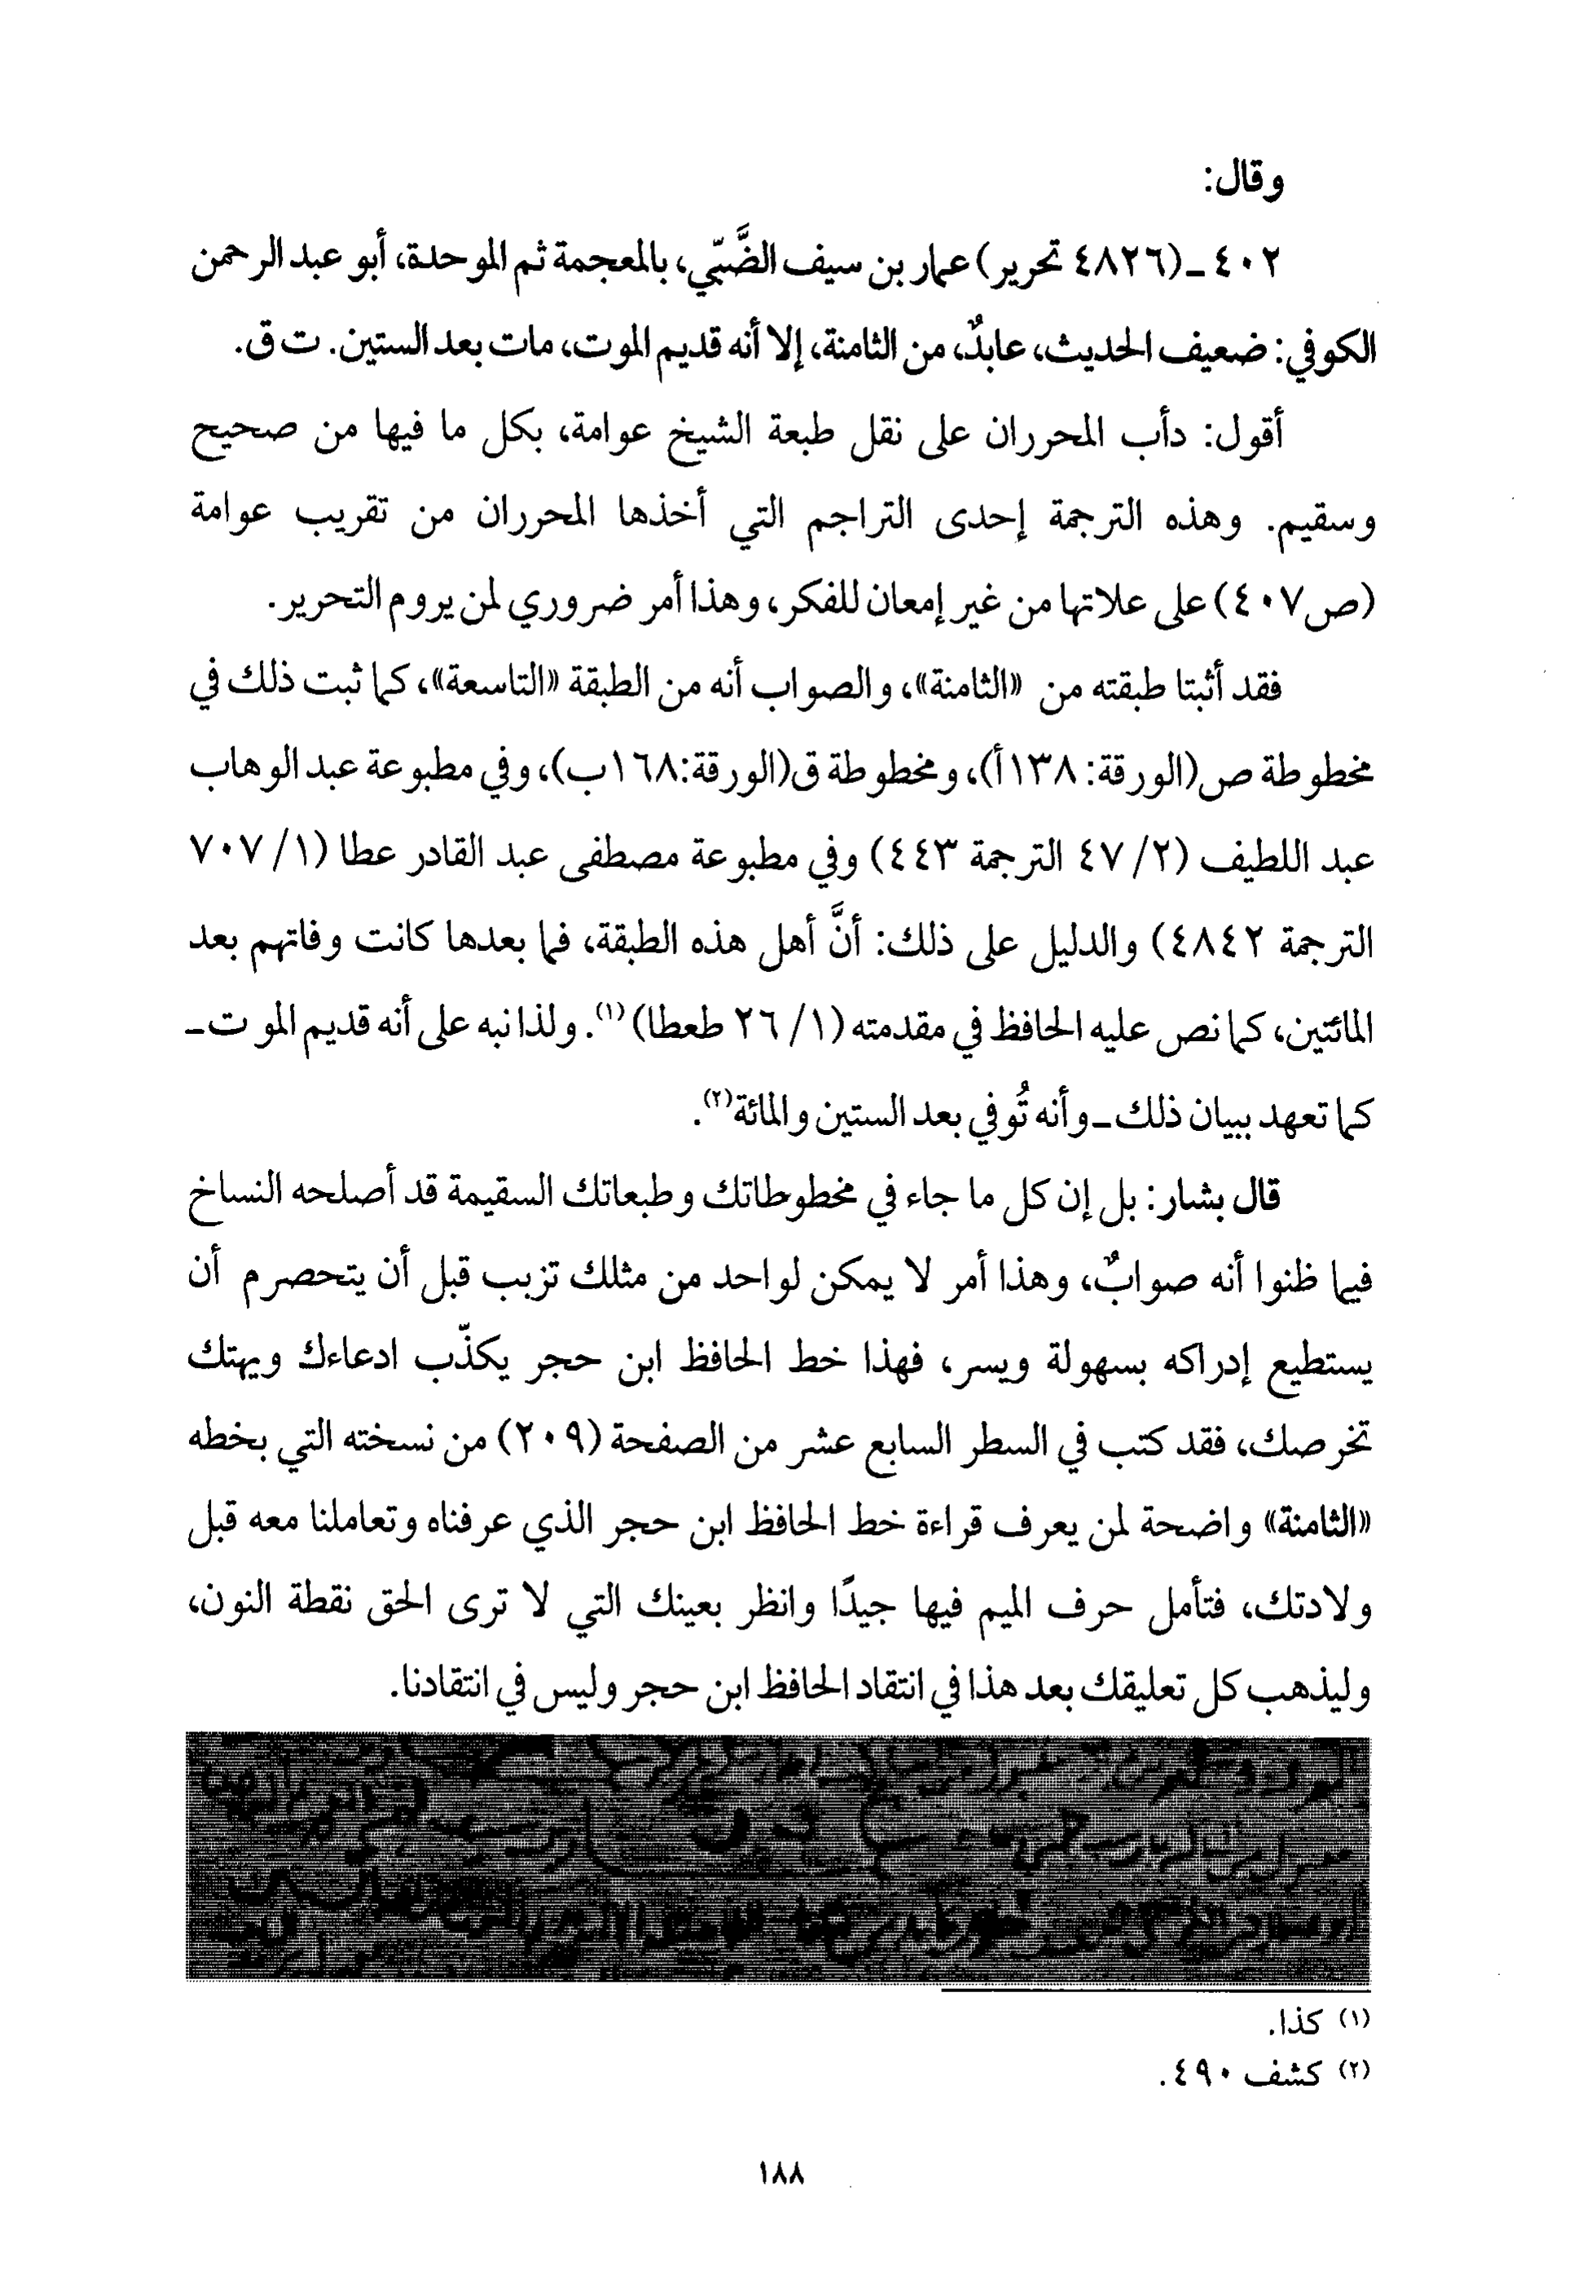 وقال:
٤٠٢ ـ (٤٨٢٦ تحرير) عمار بن سيف الضَّبّي، بالمعجمة ثم الموحدة، أبو عبد الرحمن
الكوفي: ضعيف الحديث، عابدٌ، من الثامنة، إلا أنه قديم الموت، مات بعد الستين. ت ق.
أقول: دأب المحرران على نقل طبعة الشيخ عوامة، بكل ما فيها من صحيح
وسقيم. وهذه الترجمة إحدى التراجم التي أخذها المحرران من تقريب عوامة
(ص٤٠٧) على علاتها من غير إمعان للفكر، وهذا أمر ضروري لمن يروم التحرير.
فقد أثبتا طبقته من «الثامنة»، والصواب أنه من الطبقة «التاسعة»، كما ثبت ذلك في
مخطوطة ص(الورقة: ١٣٨أ)، ومخطوطة ق(الورقة:١٦٨ب)، وفي مطبوعة عبد الوهاب
عبد اللطيف (٢/ ٤٧ الترجمة ٤٤٣) وفي مطبوعة مصطفى عبد القادر عطا (١/ ٧٠٧
الترجمة ٤٨٤٢) والدليل على ذلك: أنَّ أهل هذه الطبقة، فما بعدها كانت وفاتهم بعد
المائتين، كما نص عليه الحافظ في مقدمته (١/ ٢٦ طعطا)(١). ولذا نبه على أنه قديم الموت ـ
كما تعهد ببيان ذلك ـ وأنه تُوفي بعد الستين والمائة(٢).
قال بشار: بل إن كل ما جاء في مخطوطاتك وطبعاتك السقيمة قد أصلحه النساخ
فيما ظنوا أنه صوابٌ، وهذا أمر لا يمكن لواحد من مثلك تزبب قبل أن يتحصرم أن
يستطيع إدراكه بسهولة ويسر، فهذا خط الحافظ ابن حجر يكذّب ادعاءك ويهتك
تخرصك، فقد كتب في السطر السابع عشر من الصفحة (٢٠٩) من نسخته التي بخطه
«الثامنة» واضحة لمن يعرف قراءة خط الحافظ ابن حجر الذي عرفناه وتعاملنا معه قبل
ولادتك، فتأمل حرف الميم فيها جيدًا وانظر بعينك التي لا ترى الحق نقطة النون،
وليذهب كل تعليقك بعد هذا في انتقاد الحافظ ابن حجر وليس في انتقادنا.
(١) كذا.
(٢) كشف ٤٩٠.
١٨٨